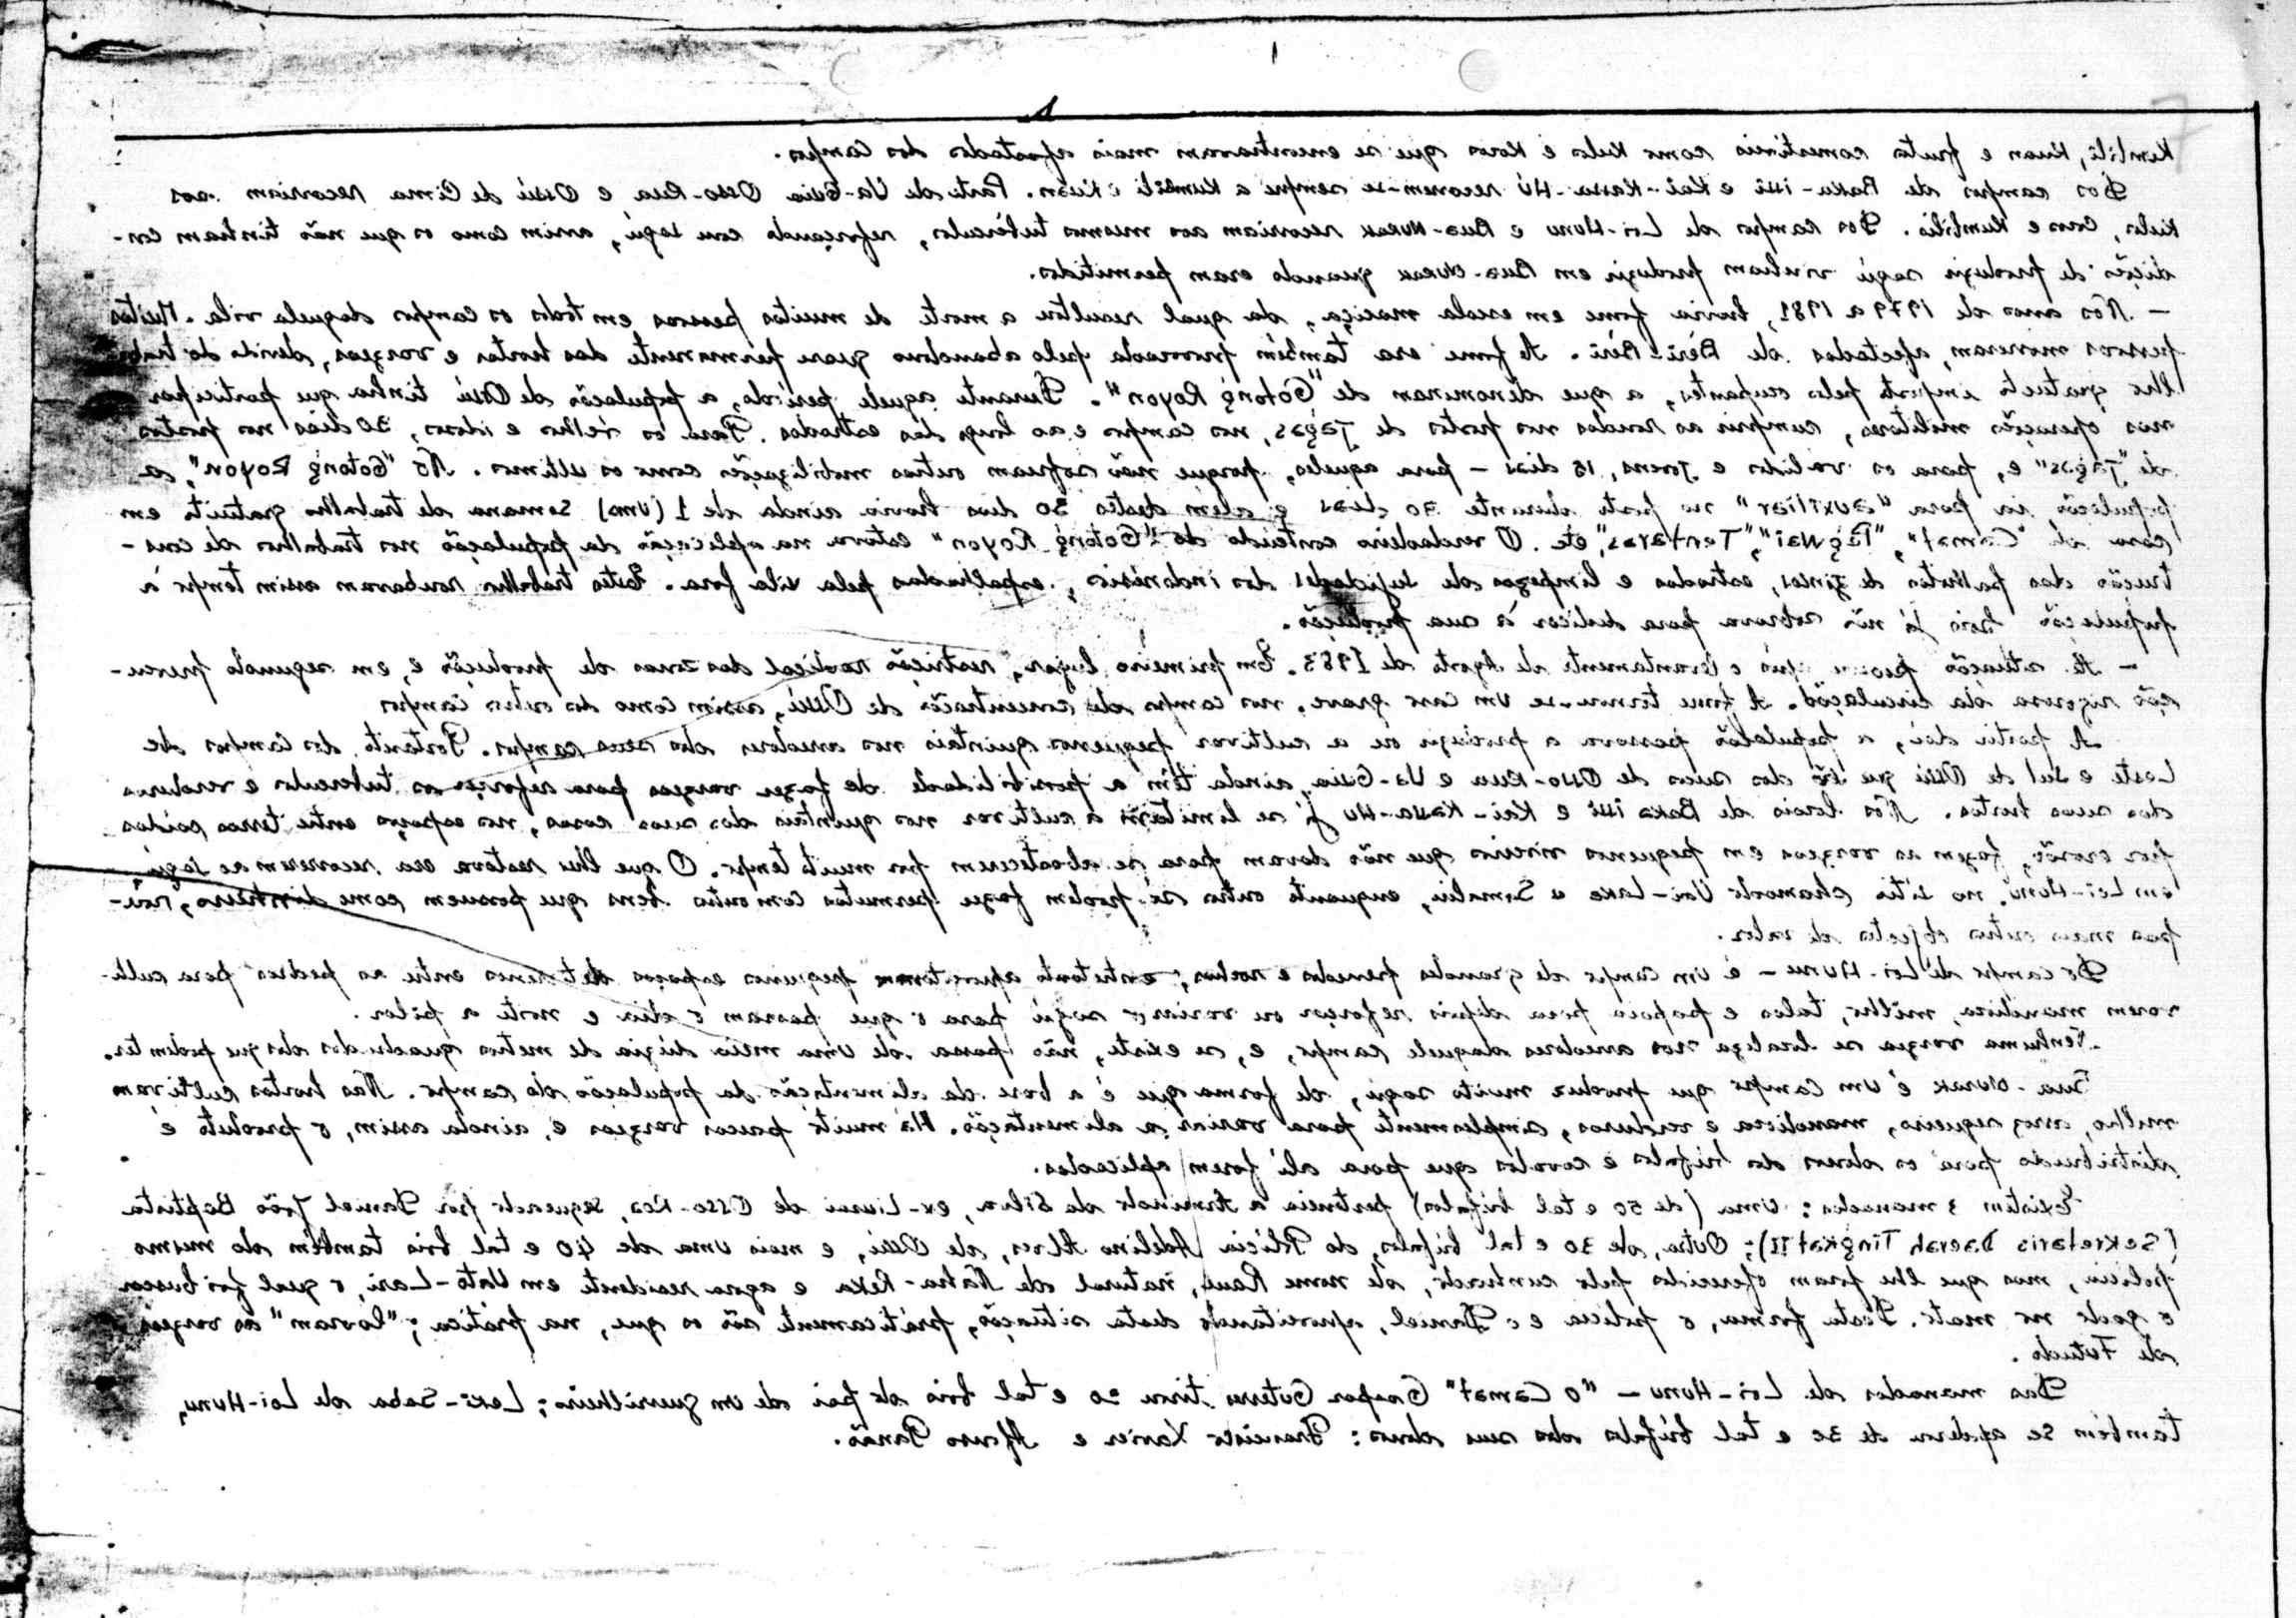 Kumbili, Kuan e fruta comestiveis como Kulo e Koros que se encontravam mais afastados dos Campos.
Dos campos de Baka-issi e Kai-Kassa-Hú recorrem-se sempre a Kumbili e Kuan. Parte de Ua-Guia Osso-Rua, e Ossú de Cima recorriam aos
Kulos, Coro e Kumbilis. Dos campos de Loi-Hunu e Bua-Nurak recorriam aos mesmos tubérculos, reforçando com sagú, assim como os que não tinham con-
dições de produzir sagú vinham produzir em Bua-Nurak quando eram permitidos.
- Nos anos de 1979 a 1981, havia fome em escala maciça, da qual resultou a morte de muitas pessoas em todos os campos daquela vila. Muitas
pessoas morreram, afectadas de Béri-Béri. A fome era também provocada pelo abandono quase permanente das hortas e vargeas, devido do traba-
lho gratuito imposto pelos ocupantes, a que denominam de "Gotong Royon". Durante aquele período, a população de Ossú tinha que participar
nas operações militares, cumprir as rondas nos postos de Jagas, nos campos e ao longo das estradas. Para os velhos e idosos, 30 dias nos postos
de "Jagas" e, para os válidos e jovens, 15 dias - para aqueles, porque não sofriam outras mobilizações como os ultimos. No "Gotong Royon", a
população ia para "auxiliar" no posto durante 30 dias e além destes 30 dias havia ainda de 1 (uma) semana de trabalho gratuito em
casa de "Camat", "Pegwai", "Tentaras", etc. O verdadeiro conteúdo do "Gotong Royon" estava na aplicação da população nos trabalhos de cons-
trução das palhotas de zinco, estradas e limpezas de sujidades dos indonésios, espalhadas pela vila fora. Estes trabalhos roubavam assim tempo à
população pois já não sobrava para dedicar à sua produção.
- A situação piorou após o levantamento de Agosto de 1983. Em primeiro lugar, restrição radical das zonas de produção e, em segundo, preven-
ção rigorosa da circulação. A fome tornou-se um caso grave, nos campos de concentração de Ossú, assim como dos outros campos
A partir daí, a população passava a produzir ou a cultivar pequenos quintais nos arredores dos seus campos. Portanto, dos Campos de
Leste e Sul de Ossú que são dos sucos de Osso-Rua e Ua-Guia, ainda têm a possibilidade de fazer vargeas para reforçar os tubérculos e verduras
das suas hortas. Nos locais de Baka issi e Kai-Kassa-Hu já se limitam a cultivar nos quintais das suas casas, nos espaços entre terras caídas
por erosão, fazem as vargeas em pequenos viveiros que não davam para se abastecerem por muito tempo. O que lhes restava era recorrerem ao sagú,
em Loi-Hunu, no sitio chamado Uai-Lake e Samaliu, enquanto outros só podem fazer permutas com outros bens que possuem como dinheiro, rou-
pas mais outros objectos de valor.
Do campo de Loi-Hunu - é um campo de grandes penedos e rochas; entretanto aproveitam pequenos espaços de terrenos entre as pedras para culti-
varem mandioca, milho, talas e papaia para depois reforçar ou variar o sagú para o que passam o dia e noite a pilar.
Nenhuma vargea se localiza nos arredores daquele campo, e, se existe, não passa de uma meia dúzia de metros quadrados dos que podem ter.
Bua-Nurak é um campo que produz muito sagú, de forma que é a base da alimentação da população do campo. Nas hortas cultivam
milho, arroz sequeiro, mandioca e verduras, simplesmente para variar a alimentação. Há muito poucas vargeas e, ainda assim, o produto é
distribuido para os donos dos búfalos e cavalos que para ali forem aplicados.
Existem 3 manadas: uma (de 50 e tal búfalos) pertencia a Armindo da Silva, ex-Liurai de Osso-Rua, segundo por Daniel João Baptista
(Sekretaris Daerah Tingkat II); Outra, de 30 e tal búfalos, do Policia Adelino Alves, de Ossú, e mais uma de 40 e tal bois também do mesmo
policia, mas que lhe foram oferecidos pelo cunhado, de nome Raul, natural de Naha-Reka e agora residente em Uato-Lari, o qual foi buscar
o gado no mato. Desta forma, o policia e o Daniel, aproveitando desta situação, práticamente são os que, na prática; "lavram" as vargeas
de Futudo.
Das manadas de Loi-Hunu - "O Camat" Gaspar Guterres tirou 20 e tal bois do pai de um guerrilheiro; Leki-Saba de Loi-Hunu,
também se apoderou de 30 e tal búfalos dos seus donos: Francisco Xavier e Afonso Panão.